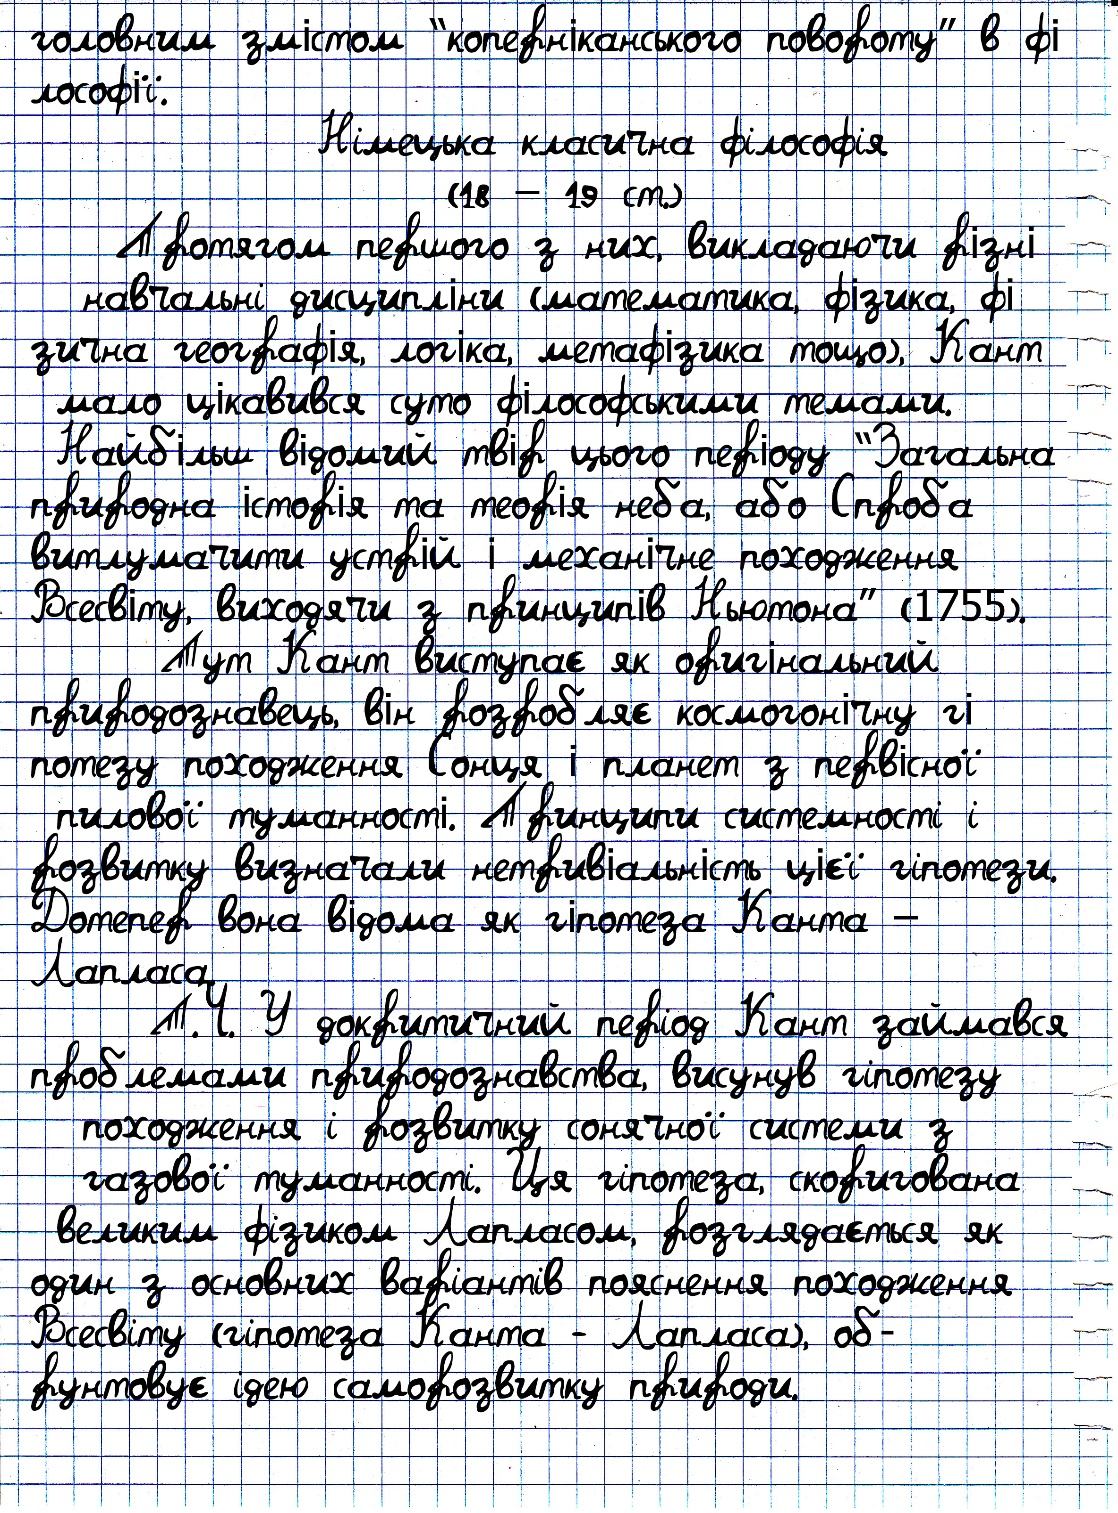 головним змістом “коперніканського повороту” в фі
лософії.
Німецька класична філософія
(18 – 19 ст.)
Протягом першого з них, викладаючи різні
навчальні дисципліни (математика, фізика, фі
зична географія, логіка, метафізика тощо), Кант
мало цікавився суто філософськими темами.
Найбільш відомий твір цього періоду “Загальна
природна історія та теорія неба, або Спроба
витлумачити устрій і механічне походження
Всесвіту, виходячи з принципів Ньютона” (1755).
Тут Кант виступає як оригінальний
природознавець, він розробляє космогонічну гі
потезу походження Сонця і планет з первісної
пилової туманності. Принципи системності і
розвитку визначали нетривіальність цієї гіпотези.
Дотепер вона відома як гіпотеза Канта –
Лапласа.
Т.Ч. У докритичний період Кант займався
проблемами природознавства, висунув гіпотезу
походження і розвитку сонячної системи з
газової туманності. Ця гіпотеза, скоригована
великим фізиком Лапласом, розглядається як
один з основних варіантів пояснення походження
Всесвіту (гіпотеза Канта - Лапласа), об-
рунтовує ідею саморозвитку природи.